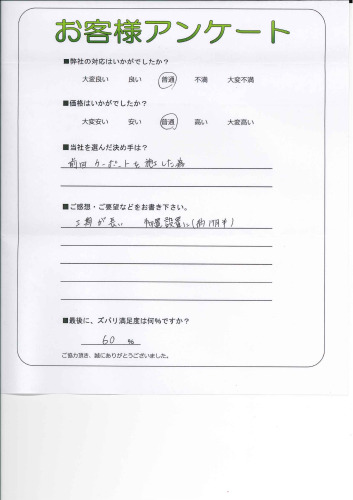 お客様アンケート
■弊社の対応はいかがでしたか？
大変良い 良い 普通 不満 大変不満
■価格はいかがでしたか？
大変安い 安い 普通 高い 大変高い
■当社を選んだ決め手は？
前回カーポートを施工した為
■ご感想・ご要望などをお書き下さい。
工期が長い 物置設置に(約1ヶ月半)
■最後に、ズバリ満足度は何%ですか？
60 %
ご協力頂き、誠にありがとうございました。